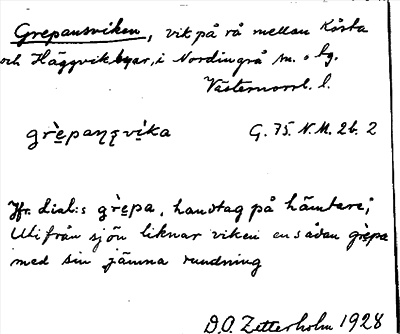 Grepansviken, vik på rå mellan Kåsta
och Häggvik byar, i Nordingrå sn. o. lg.
Västernorrl. l.
grè̱paņȩvi̱ka G. 75. N.M. 2b. 2
Jfr. dial:s grè̱pa, handtag på hämtare;
Utifrån sjön liknar viken en sådan grè̱pa
med sin jämna rundning
D.O. Zetterholm 1928